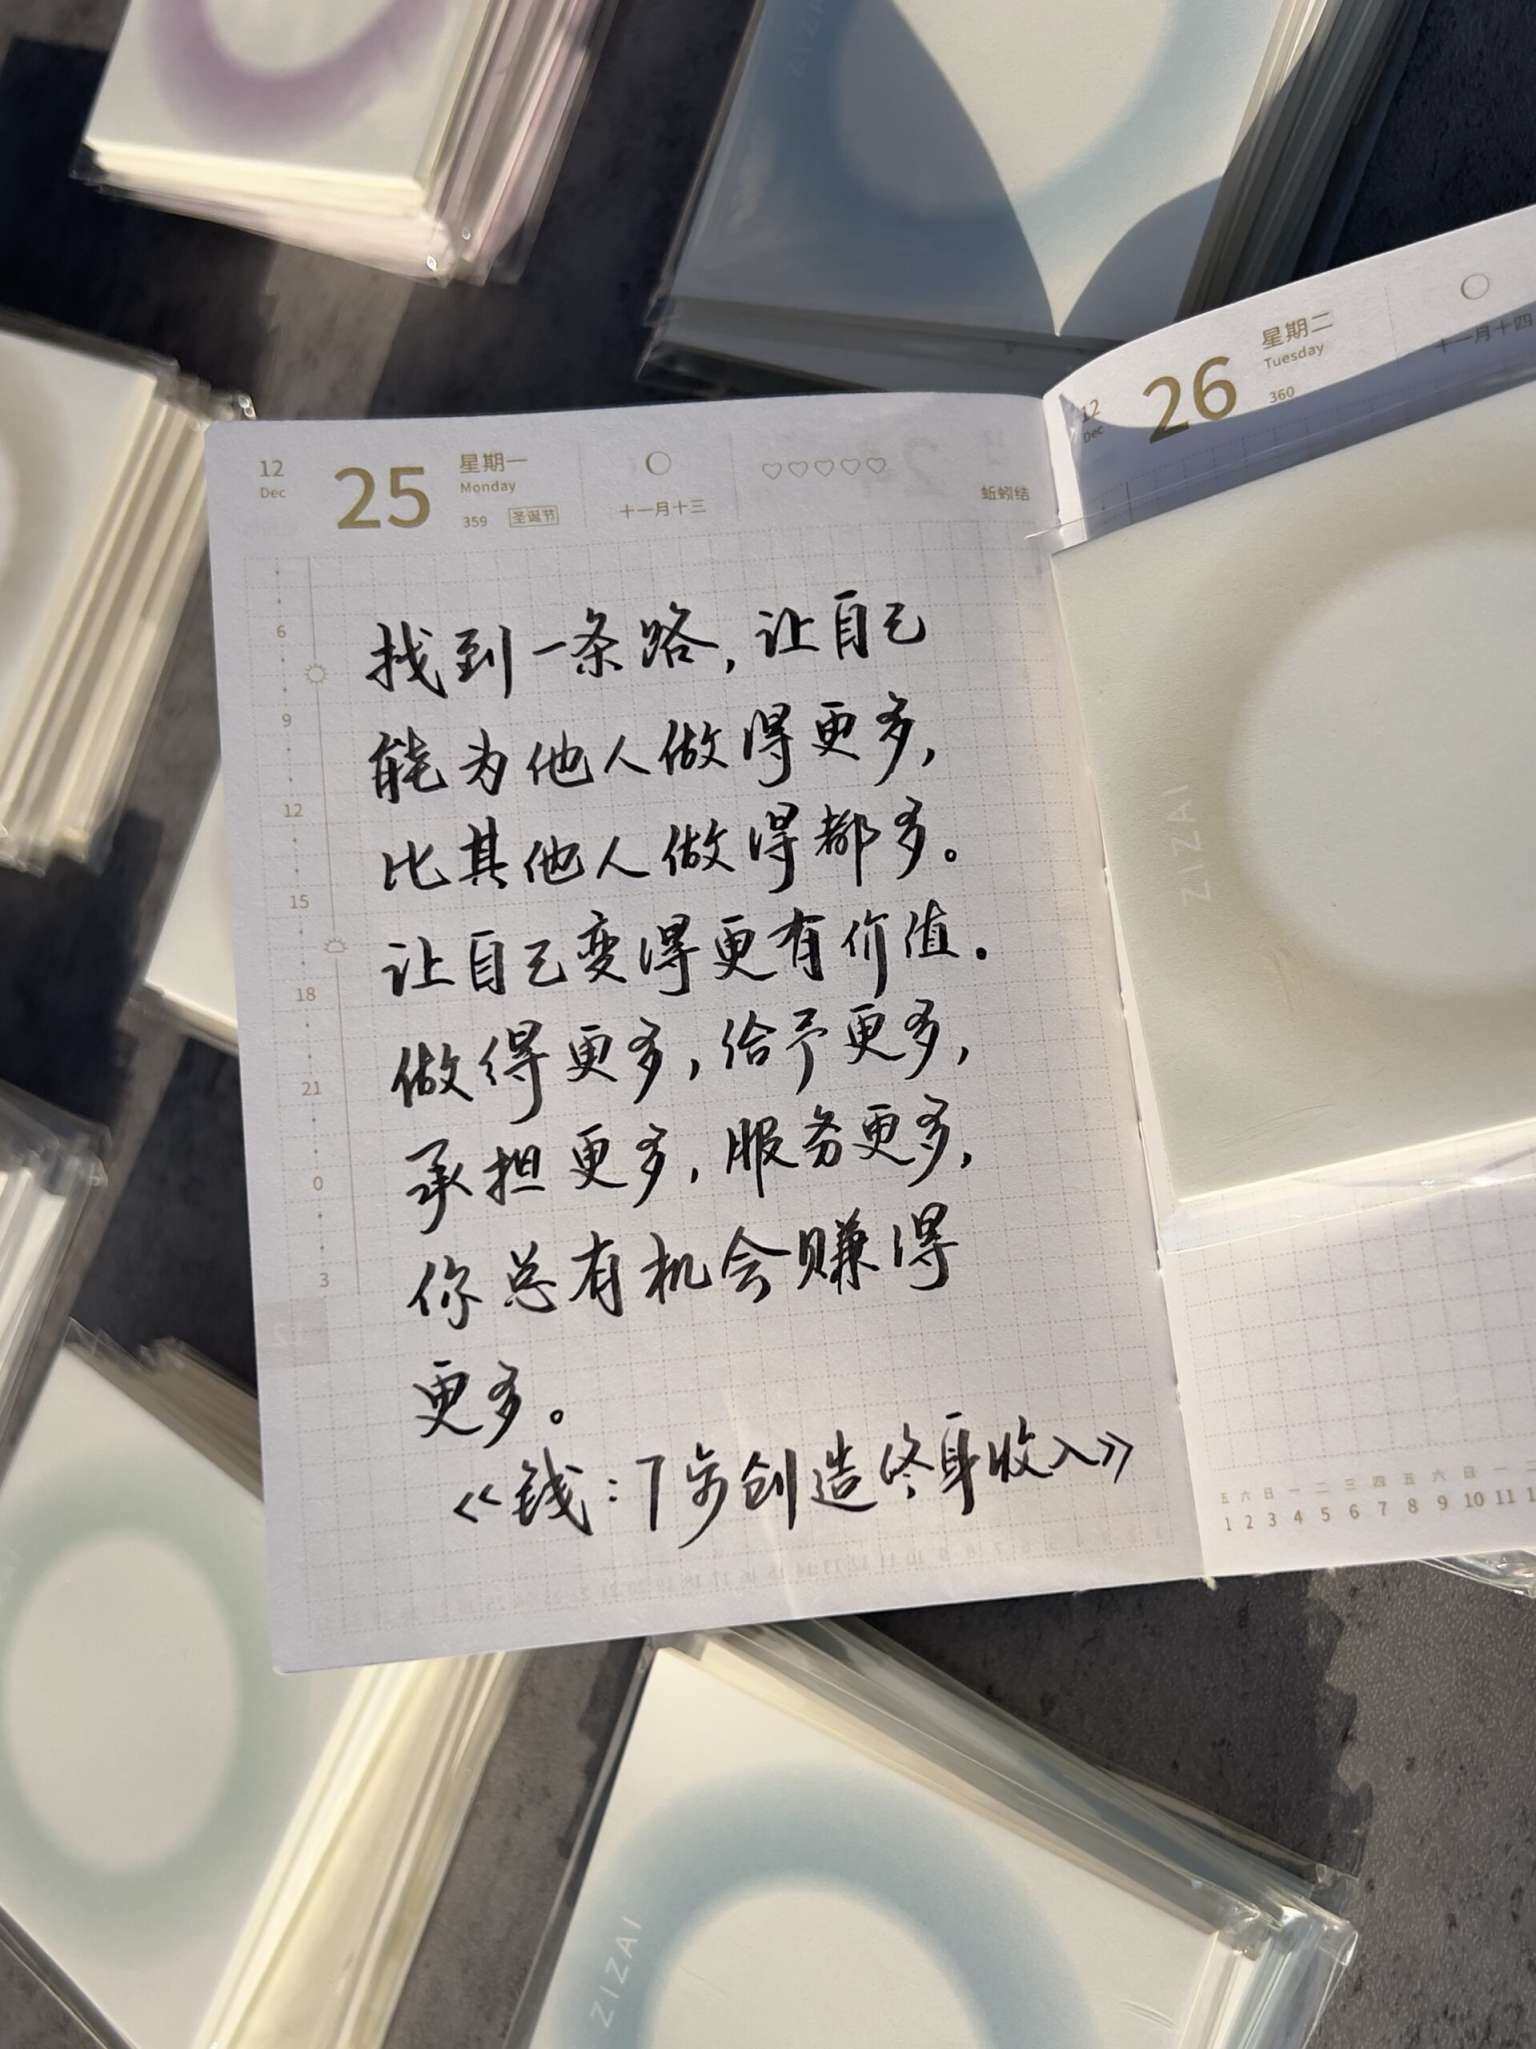 12
Dec
25
星期一
Monday
359 圣诞节
十一月十三
♡♡♡♡♡
蚯蚓结
6
9
12
15
18
21
0
3
找到一条路，让自己
能为他人做得更多，
比其他人做得都多。
让自己变得更有价值。
做得更多，给予更多，
承担更多，服务更多，
你总有机会赚得
更多。
《钱：7步创造终身收入》
12
Dec
26
星期二
Tuesday
360
十一月十四
ZIZAI
五 六 日 一 二 三 四 五 六 日 一
1 2 3 4 5 6 7 8 9 10 11
ZIZAI